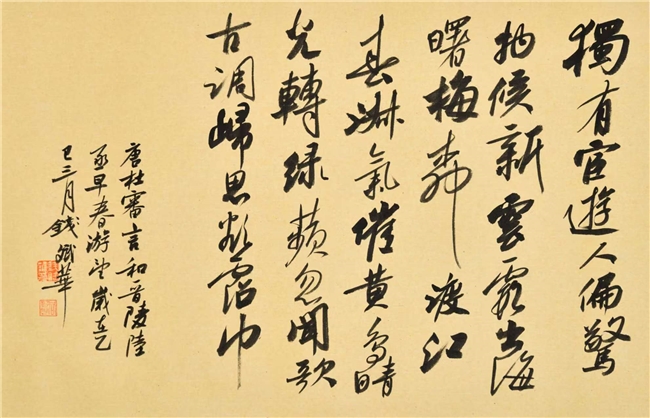 獨有宦遊人偏驚
物候新雲霞出海
曙梅柳渡江
春淑氣催黃鳥晴
光轉綠蘋忽聞歌
古調歸思欲霑巾
唐杜審言和晉陵陸
丞早春游望歲在乙
巳三月錢華